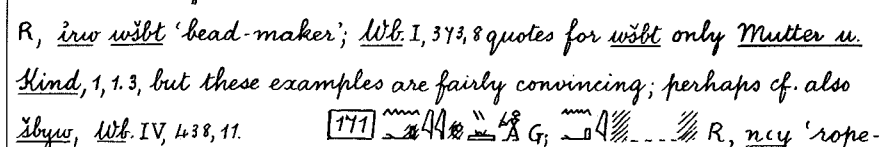 R, i҆rw wšbt ‘bead-maker’; Wb. I, 373, 8 quotes for wšbt only Mutter u.
Kind, 1, 1.3, but these examples are fairly convincing; perhaps cf. also
šbyw, Wb. IV, 438, 11. 171 G; R, nꜥy ‘rope-